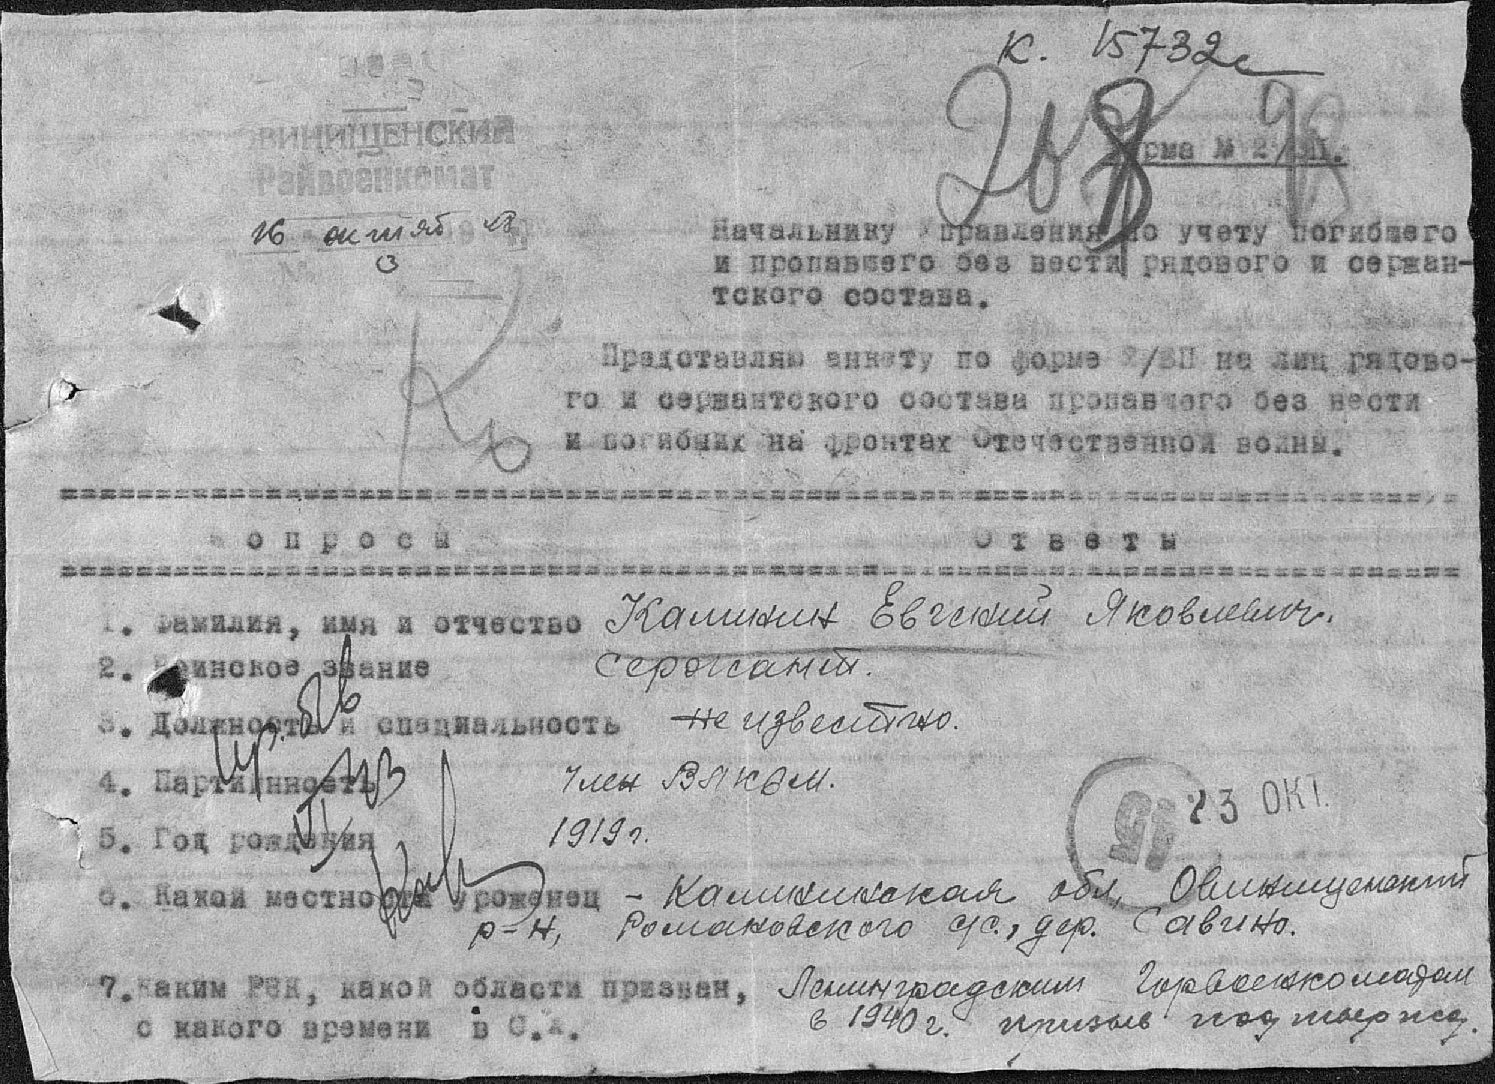 К. 15732с
ВИНИЩЕНСКИЙ
Райвоенкомат
Форма № 2/ВП.
16 октяб
Начальнику Управления по учету погибшего
и пропавшего без вести рядового и сержан-
тского состава.
Представляю анкету по форме 2/ВП на лиц рядово-
го и сержантского состава пропавшего без вести
и погибших на фронтах Отечественной войны.
Вопросы Ответы
1. Фамилия, имя и отчество Калинин Евгений Яковлевич.
2. Воинское звание сержант.
3. Должность и специальность неизвестно.
4. Партийность член ВЛКСМ.
23 ОКТ.
5. Год рождения 1919 г.
6. Какой местности уроженец - Калининская обл, Овинищенский
р-н, Романовского с/с., дер. Савино.
7. Каким РВК, какой области призван, Ленинградским Горвоенкоматом
с какого времени в С.А. в 1940 г. призыв подтвержд.